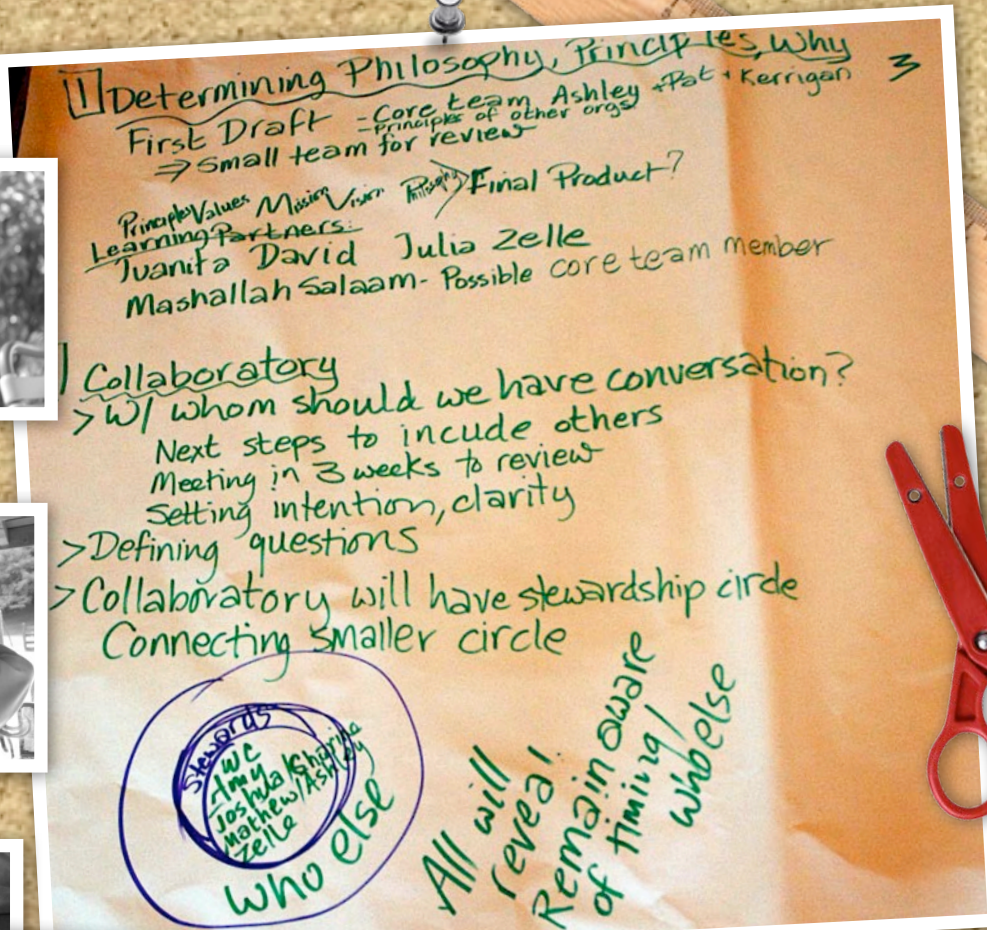 1 Determining Philosophy, Principles, Why 3
First Draft - Core team Ashley + Pat + Kerrigan
- Principles of other orgs
⇒ Small team for review
Principles Values Mission Vision Philosophy > Final Product?
Learning Partners:
Juanita David Julia Zelle
Mashallah Salaam - Possible core team member
Collaboratory
> W/ whom should we have conversation?
Next steps to incude others
Meeting in 3 weeks to review
Setting intention, clarity
> Defining questions
> Collaboratory will have stewardship circle
Connecting smaller circle
Stewards
WC
Amy
Joshua Ksharika
Mathew/Ashley
Zelle
who else
All will
reveal
Remain aware
of timing/
who else